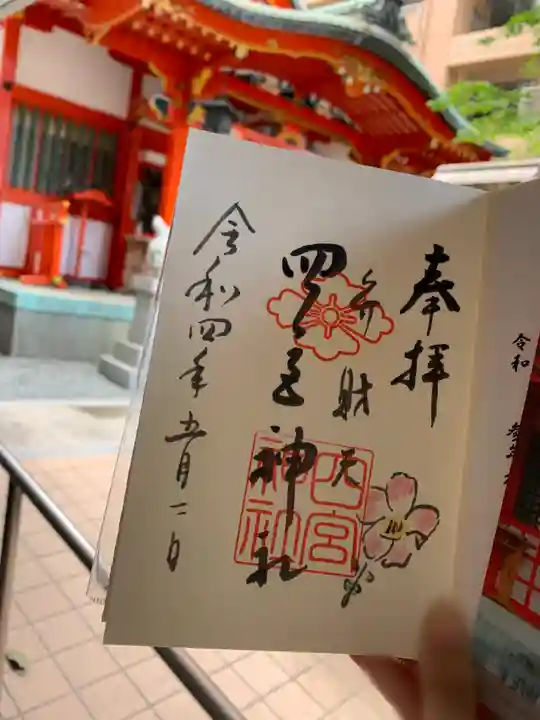 奉拝
弁財天
四之宮神社
四宮神社
令和四年五月二日
令和